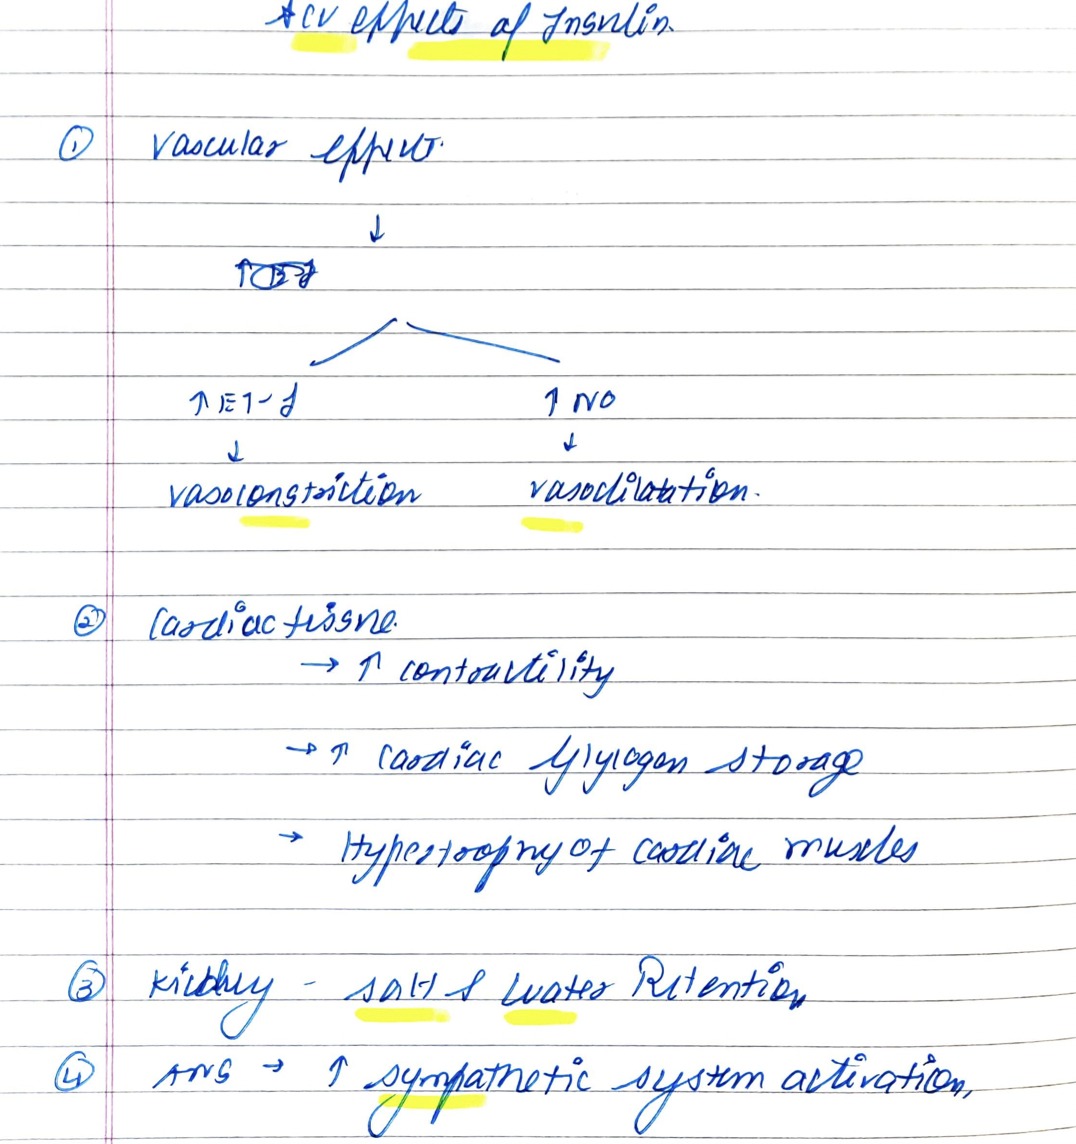 ★ CV effects of Insulin.
① Vascular effect.
↓
↑ ET-1 ↑ NO
↓ ↓
vasoconstriction vasodilatation.
② Cardiac tissue.
→ ↑ contractility
→ ↑ cardiac Glycogen storage
→ Hypertrophy of cardiac muscles
③ Kidney - salt & water Retention
④ ANS → ↑ sympathetic system activation,